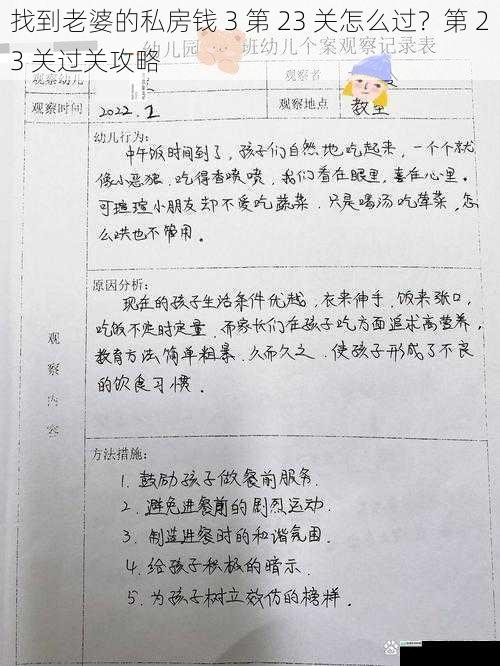 找到老婆的私房钱 3 第 23 关怎么过？第 2
3 关过关攻略
幼儿园
班幼儿个案观察记录表
观察幼儿
观察者
观察时间
2022.2
观察地点
教室
幼儿行为:
中午饭时间到了，孩子们自然地吃起来，一个个就
像小恶狼，吃得香喷喷，我们看在眼里，喜在心里。
可瑄瑄小朋友却不爱吃蔬菜，只是喝汤吃荤菜，怎
么哄也不管用。
原因分析:
现在的孩子生活条件优越，衣来伸手，饭来张口，
吃饭不定时定量，而家长们在孩子吃方面追求高营养，
教育方法简单粗暴，久而久之，使孩子形成了不良
的饮食习惯。
观察内容
方法措施:
1. 鼓励孩子做餐前服务.
2. 避免进餐前的剧烈运动.
3. 制造进餐时的和谐氛围.
4. 给孩子积极的暗示.
5. 为孩子树立效仿的榜样.